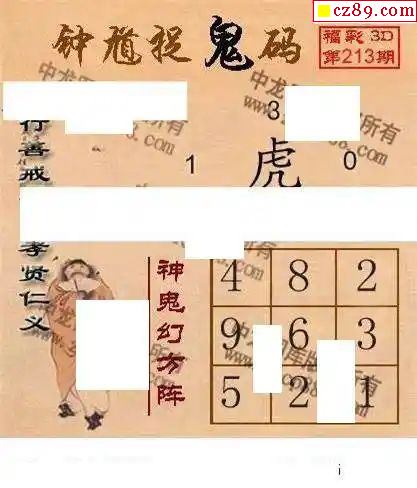 cz89.com
钟馗捉鬼码
福彩3D
第213期
3
1 虎 0
行善戒
孝贤仁义
神鬼幻方阵
4 8 2
9 6 3
5 2 1
i